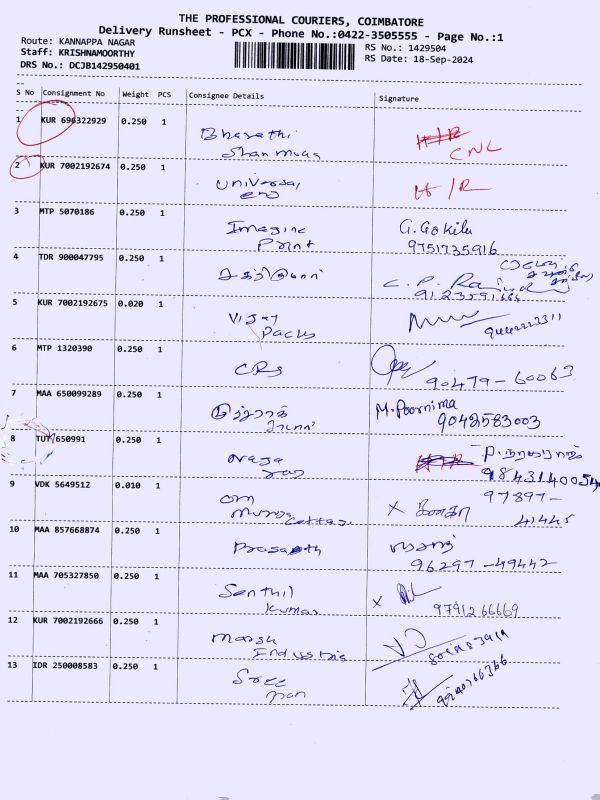 THE PROFESSIONAL COURIERS, COIMBATORE
Delivery Runsheet - PCX - Phone No.:0422-3505555 - Page No.:1
Route: KANNAPPA NAGAR
RS No.: 1429504
Staff: KRISHNAMOORTHY
RS Date: 18-Sep-2024
DRS No.: DCJB142950401
S No Consignment No Weight PCS Consignee Details Signature
1 KUR 696322929 0.250 1
Bharathi
Shanmuga CNL
2 KUR 7002192674 0.250 1
Universal H/R
3 MTP 5070186 0.250 1
Imagine G. Gokila
Print 9751735916
4 TDR 900047795 0.250 1
C. P.
5 KUR 7002192675 0.020 1
Vijay
Packs
6 MTP 1320390 0.250 1
CRS
90479-60063
7 MAA 650099289 0.250 1
M. Poornima
9042583003
8 TUT 650991 0.250 1
Naga
9843140054
9 VDK 5649512 0.010 1
97897-
Om
41445
10 MAA 857668874 0.250 1
Prasanth
96297-49442
11 MAA 705327850 0.250 1
Senthil
Kumar 9791266669
12 KUR 7002192666 0.250 1
Marsh
Industris
13 IDR 250008583 0.250 1
Sree